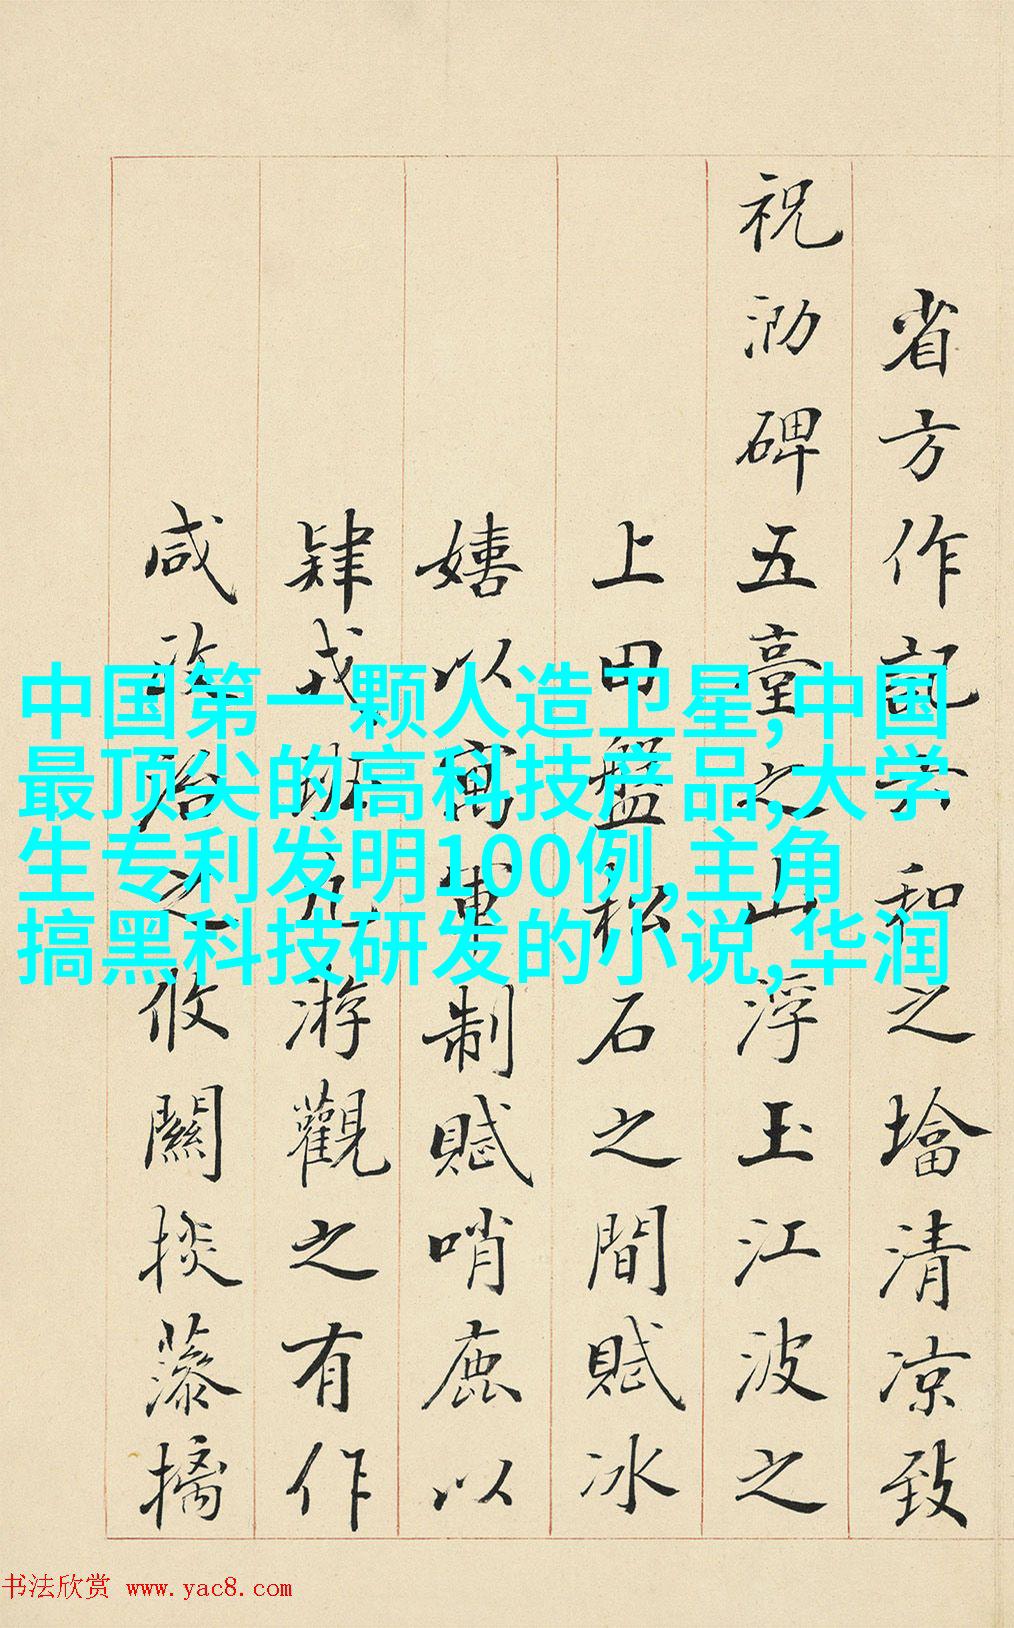 中国第一颗人造卫星,中国
最顶尖的高科技产品,大学
生专利发明100例,主角
搞黑科技研发的小说,华润
省方作和之墖清凉致
祝泐碑五臺之山浮玉江波之
上田盤松石之間賦冰
嬉以寓制賦哨鹿以
肄戎游觀之有作
咸治之攸關掞藻摛
书法欣赏 www.yac8.com